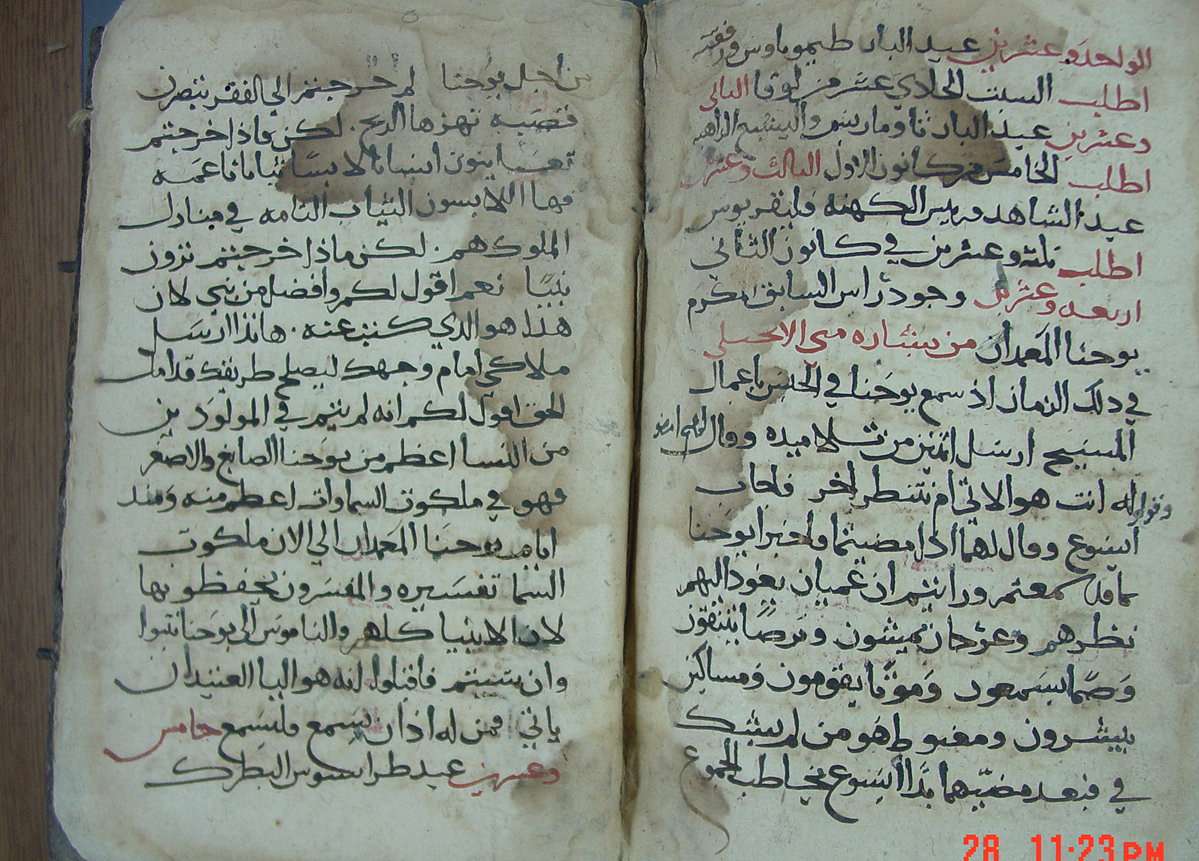 الواحد وعشرين عيد البار طيموتاوس ورفقته
اطلب السبت الحادي عشر من لوقا الثاني
وعشرين عيد البار
اطلب الخامس من كانون الاول الثالث وعشرين
عيد الشاهد في ريس الكهنه
اطلب ثلثه وعشرين في كانون الثاني
اربعه وعشرين وجود راس السابق المكرم
يوحنا المعمدان من بشاره متى الانجيلي
في ذلك الزمان اذ سمع يوحنا في الحبس باعمال
المسيح ارسل اثنين من تلاميذه وقال
له انت هو الاتي ام ننتظر اخر فاجاب
ايسوع وقال لهما اذا مضيتما واخبرا يوحنا
بما قد سمعتم ورايتم ان عميان يعود اليهم
نظرهم وعرجان يمشون وبرصا يتنقون
وصما يسمعون وموتا يقومون ومساكين
يبشرون ومغبوط هو من لم يشك
في فبعد مضيهما بدا ايسوع يخاطب الجموع
من اجل يوحنا لم خرجتم الى القفر تبصرون
قصبه تهزها الريح لكن ماذا خرجتم
انسانا لابسا ثيابا ناعمه
فها اللابسون الثياب الناعمه في منازل
الملوك هم لكن ماذا خرجتم ترون
نبيا نعم اقول لكم وافضل من نبي لان
هذا هو الذي كتب عنه هانذا ارسل
ملاكي امام وجهك ليصلح طريقك قدامك
الحق اقول لكم انه لم يقم في المولودين
من النسا اعظم من يوحنا الصابغ والاصغر
فهو في ملكوت السماوات اعظم منه ومنذ
ايام يوحنا المعمدان الى الان ملكوت
السما تفسيره والمفسرون يحفظو بها
لان الانبيا كلهم والناموس الى يوحنا تنبوا
وان شيتم فاقبلوا انه هو اليا العتيد ان
ياتي فمن له اذان يسمع فليسمع خامس
وعشرين عيد البطرك